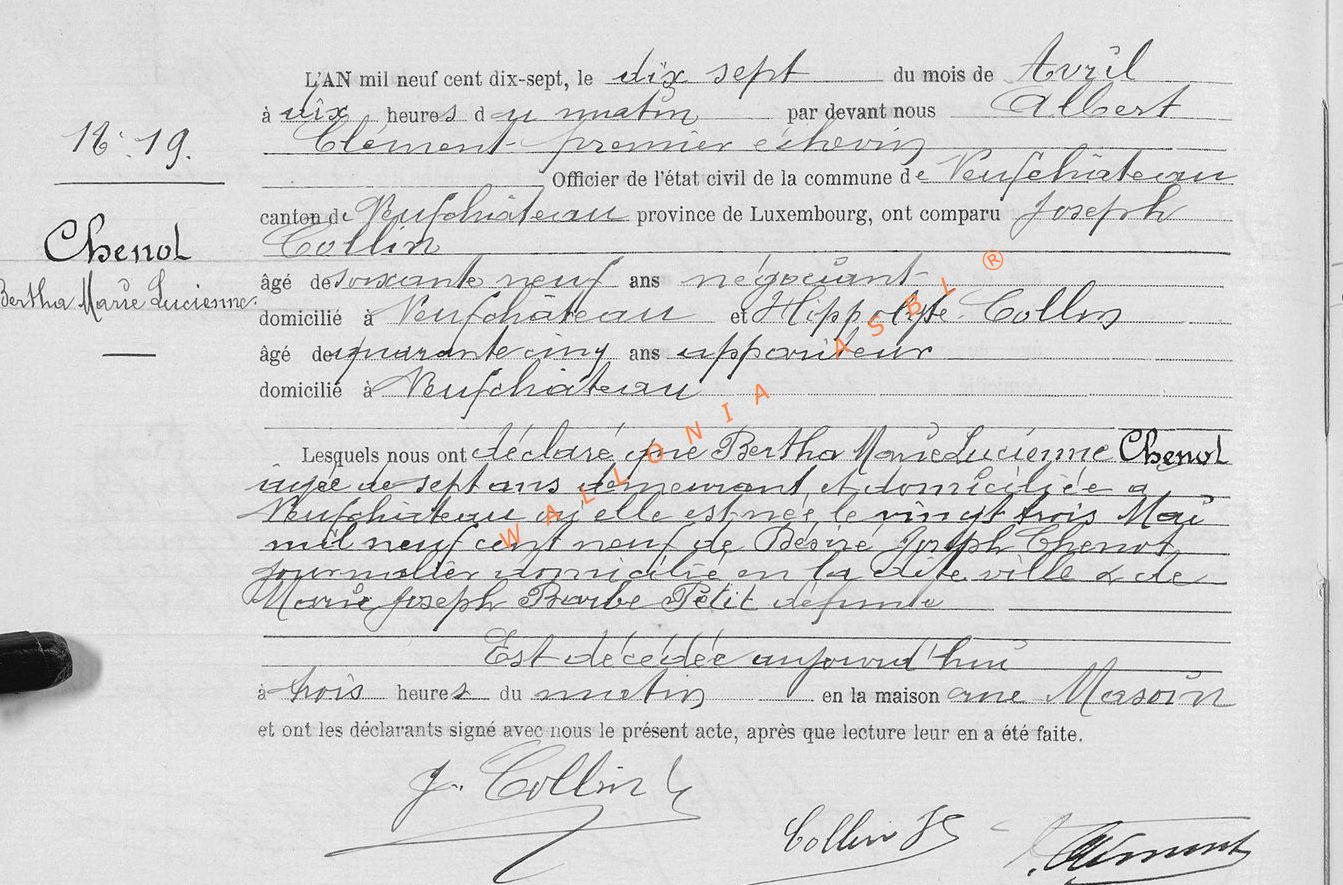 L'AN mil neuf cent dix-sept, le dix sept du mois de Avril
à dix heures du matin par devant nous Albert
Clément premier échevin
N° 19.
Officier de l'état civil de la commune de Neufchâteau
canton de Neufchâteau province de Luxembourg, ont comparu Joseph
Collin
Chenot
Bertha Marie Lucienne.
âgé de soixante neuf ans négociant
domicilié à Neufchâteau et Hippolyte Collin
âgé de quarante cinq ans appariteur
domicilié à Neufchâteau
WALLONIA ASBL ®
Lesquels nous ont déclaré que Bertha Marie Lucienne Chenot
âgée de sept ans demeurant et domiciliée a
Neufchâteau où elle est née le vingt trois Mai
mil neuf cent neuf de Désiré Joseph Chenot
journalier domicilié en la dite ville & de
Marie Joseph Barbe Petit défunte
Est décédée aujourd'hui
à trois heures du matin en la maison rue Masoin
et ont les déclarants signé avec nous le présent acte, après que lecture leur en a été faite.
J. Collin
Collin
Clément